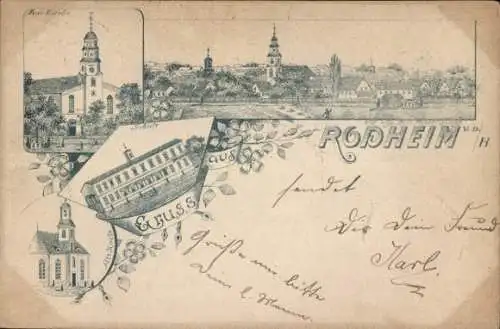 Neue Kirche
Gruss
aus
RODHEIM v. d. H
sendet
Dir Dein Freund
Karl.
Grüße mir bitte
Dein